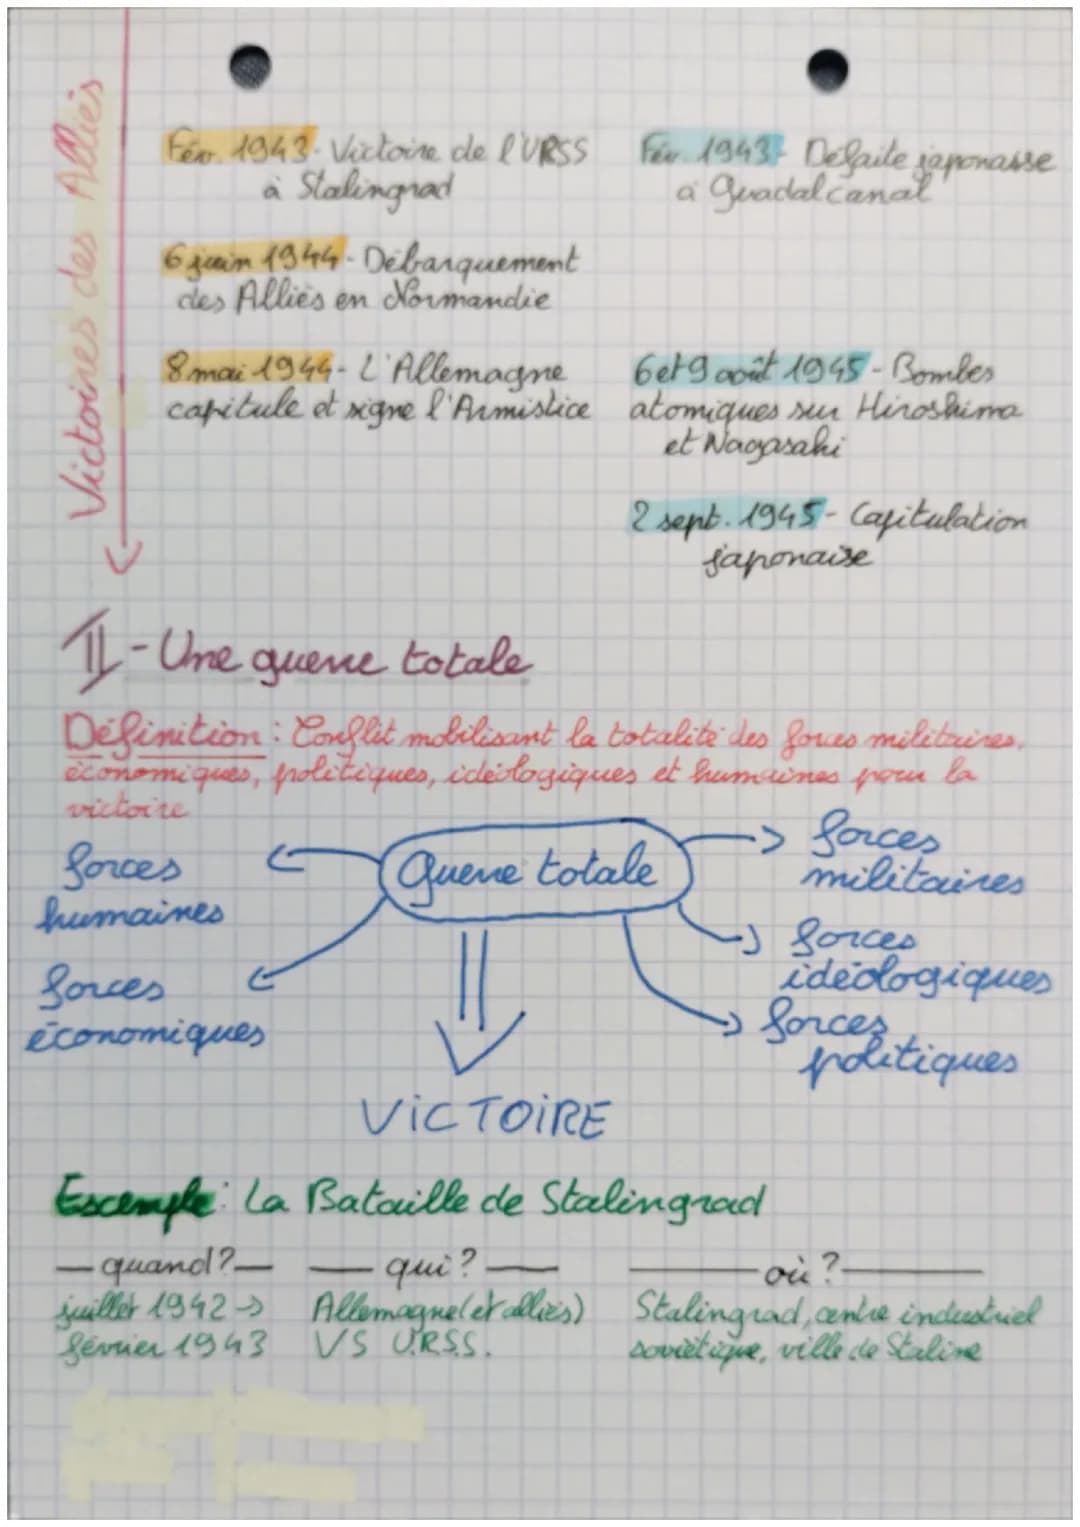 Victoires des Alliés
Fév. 1943- Victoire de l'URSS
à Stalingrad
6 juin 1944- Débarquement
des Alliés en Normandie
8 mai 1944- L'Allemagne
capitule et signe l'Armistice
Fév. 1943- Défaite japonaise
à Guadalcanal
6 et 9 août 1945- Bombes
atomiques sur Hiroshima
et Nagasaki
2 sept. 1945- Capitulation
japonaise
II - Une guerre totale
Définition : Conflit mobilisant la totalité des forces militaires,
économiques, politiques, idéologiques et humaines pour la
victoire
Guerre totale
forces
humaines
forces
économiques
forces
militaires
forces
idéologiques
forces
politiques
VICTOIRE
Exemple : La Bataille de Stalingrad
quand?
juillet 1942 →
février 1943
qui?
Allemagne (et alliés)
VS U.R.S.S.
où?
Stalingrad, centre industriel
soviétique, ville de Staline